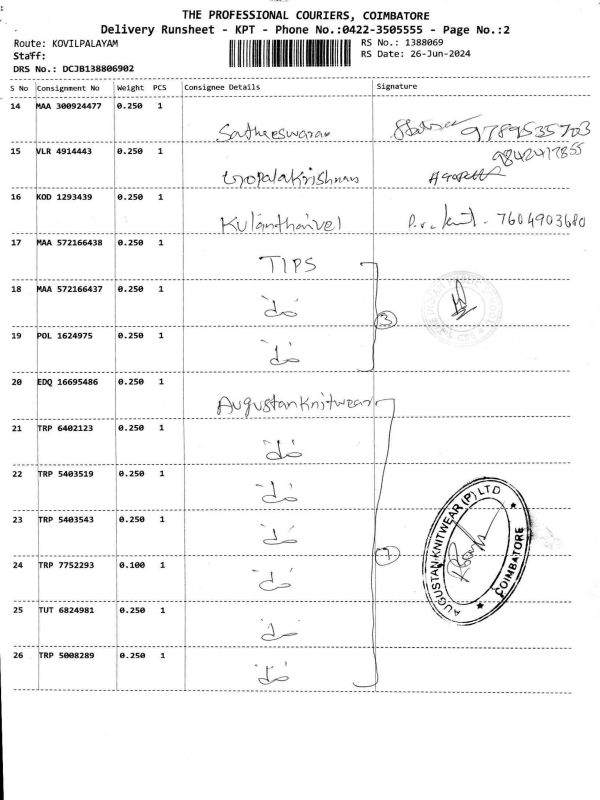 THE PROFESSIONAL COURIERS, COIMBATORE
Delivery Runsheet - KPT - Phone No.:0422-3505555 - Page No.:2
Route: KOVILPALAYAM RS No.: 1388069
Staff: RS Date: 26-Jun-2024
DRS No.: DCJB138806902
S No Consignment No Weight PCS Consignee Details Signature
14 MAA 300924477 0.250 1 Satheeswaran 9789535703
15 VLR 4914443 0.250 1 Gopalakrishnan 9842417855
16 KOD 1293439 0.250 1 Kulanthaivel 7604903680
17 MAA 572166438 0.250 1 TIPS
18 MAA 572166437 0.250 1 "do" 3
19 POL 1624975 0.250 1 "do"
20 EDQ 16695486 0.250 1 Augustan Knitwear
21 TRP 6402123 0.250 1 "do"
22 TRP 5403519 0.250 1 "do"
23 TRP 5403543 0.250 1 "do" 7
24 TRP 7752293 0.100 1 "do"
25 TUT 6824981 0.250 1 "do"
26 TRP 5008289 0.250 1 "do"
AUGUSTAN KNITWEAR (P) LTD
COIMBATORE